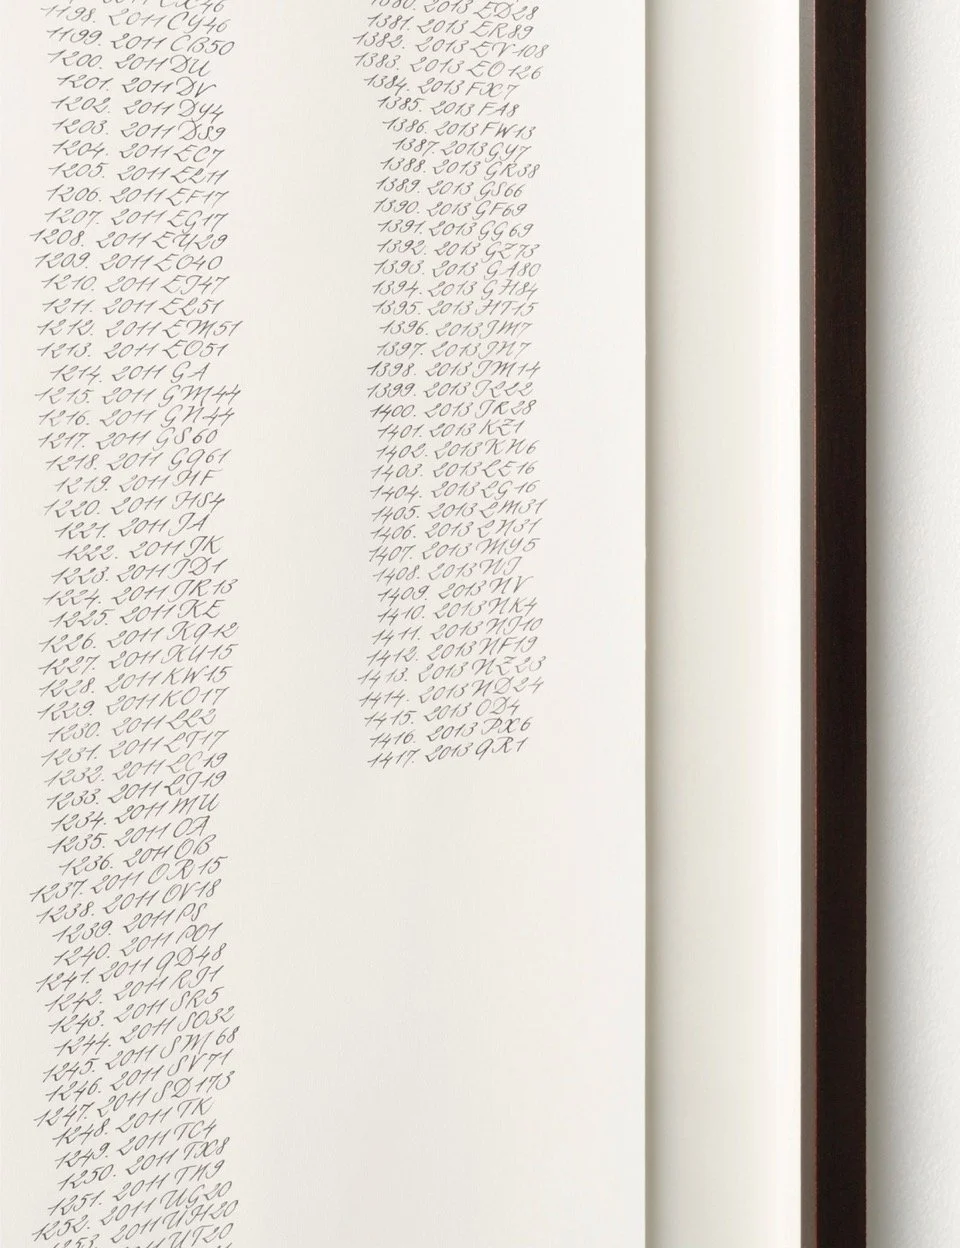 1198. 2011 CY46
1199. 2011 CB50
1200. 2011 DU
1201. 2011 DV
1202. 2011 DY4
1203. 2011 DS9
1204. 2011 EC7
1205. 2011 EL11
1206. 2011 EF17
1207. 2011 EG17
1208. 2011 EU29
1209. 2011 EO40
1210. 2011 EJ47
1211. 2011 EL51
1212. 2011 EM51
1213. 2011 EO51
1214. 2011 GA
1215. 2011 GM44
1216. 2011 GN44
1217. 2011 GS60
1218. 2011 GQ61
1219. 2011 HF
1220. 2011 HS4
1221. 2011 JA
1222. 2011 JK
1223. 2011 JD1
1224. 2011 JR13
1225. 2011 KE
1226. 2011 KQ12
1227. 2011 KU15
1228. 2011 KW15
1229. 2011 KO17
1230. 2011 LL2
1231. 2011 LT17
1232. 2011 LC19
1233. 2011 LJ19
1234. 2011 MU
1235. 2011 OA
1236. 2011 OB
1237. 2011 OR15
1238. 2011 OV18
1239. 2011 PS
1240. 2011 PO1
1241. 2011 QD48
1242. 2011 RJ1
1243. 2011 SR5
1244. 2011 SO32
1245. 2011 SM68
1246. 2011 SV71
1247. 2011 SD173
1248. 2011 TK
1249. 2011 TC4
1250. 2011 TX8
1251. 2011 TN9
1252. 2011 UG20
1253. 2011 UH20
2011 UT20
1380. 2013 ED28
1381. 2013 ER89
1382. 2013 EV108
1383. 2013 EO126
1384. 2013 FX7
1385. 2013 FA8
1386. 2013 FW13
1387. 2013 GY7
1388. 2013 GR38
1389. 2013 GS66
1390. 2013 GF69
1391. 2013 GG69
1392. 2013 GZ73
1393. 2013 GA80
1394. 2013 GH84
1395. 2013 HT15
1396. 2013 JM7
1397. 2013 JN7
1398. 2013 JM14
1399. 2013 JL22
1400. 2013 JR28
1401. 2013 KZ1
1402. 2013 KN6
1403. 2013 LE16
1404. 2013 LG16
1405. 2013 LM31
1406. 2013 LN31
1407. 2013 MY5
1408. 2013 NJ
1409. 2013 NV
1410. 2013 NK4
1411. 2013 NJ10
1412. 2013 NF19
1413. 2013 NZ23
1414. 2013 ND24
1415. 2013 OD4
1416. 2013 PX6
1417. 2013 QR1